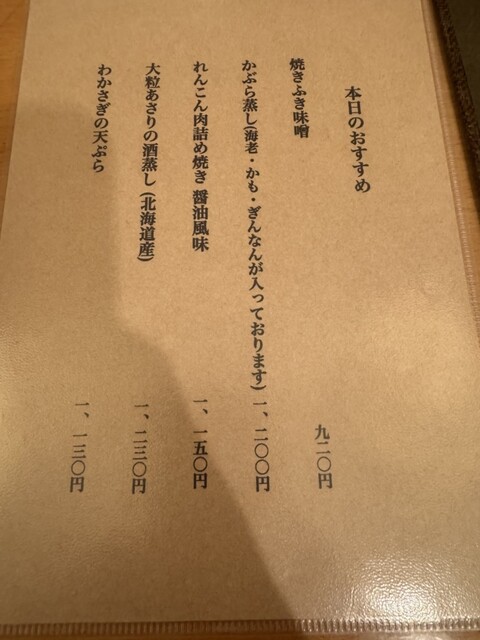 本日のおすすめ
焼きふき味噌 九二〇円
かぶら蒸し(海老・かも・ぎんなんが入っております) 一、二〇〇円
れんこん肉詰め焼き 醤油風味 一、一五〇円
大粒あさりの酒蒸し(北海道産) 一、二三〇円
わかさぎの天ぷら 一、一三〇円